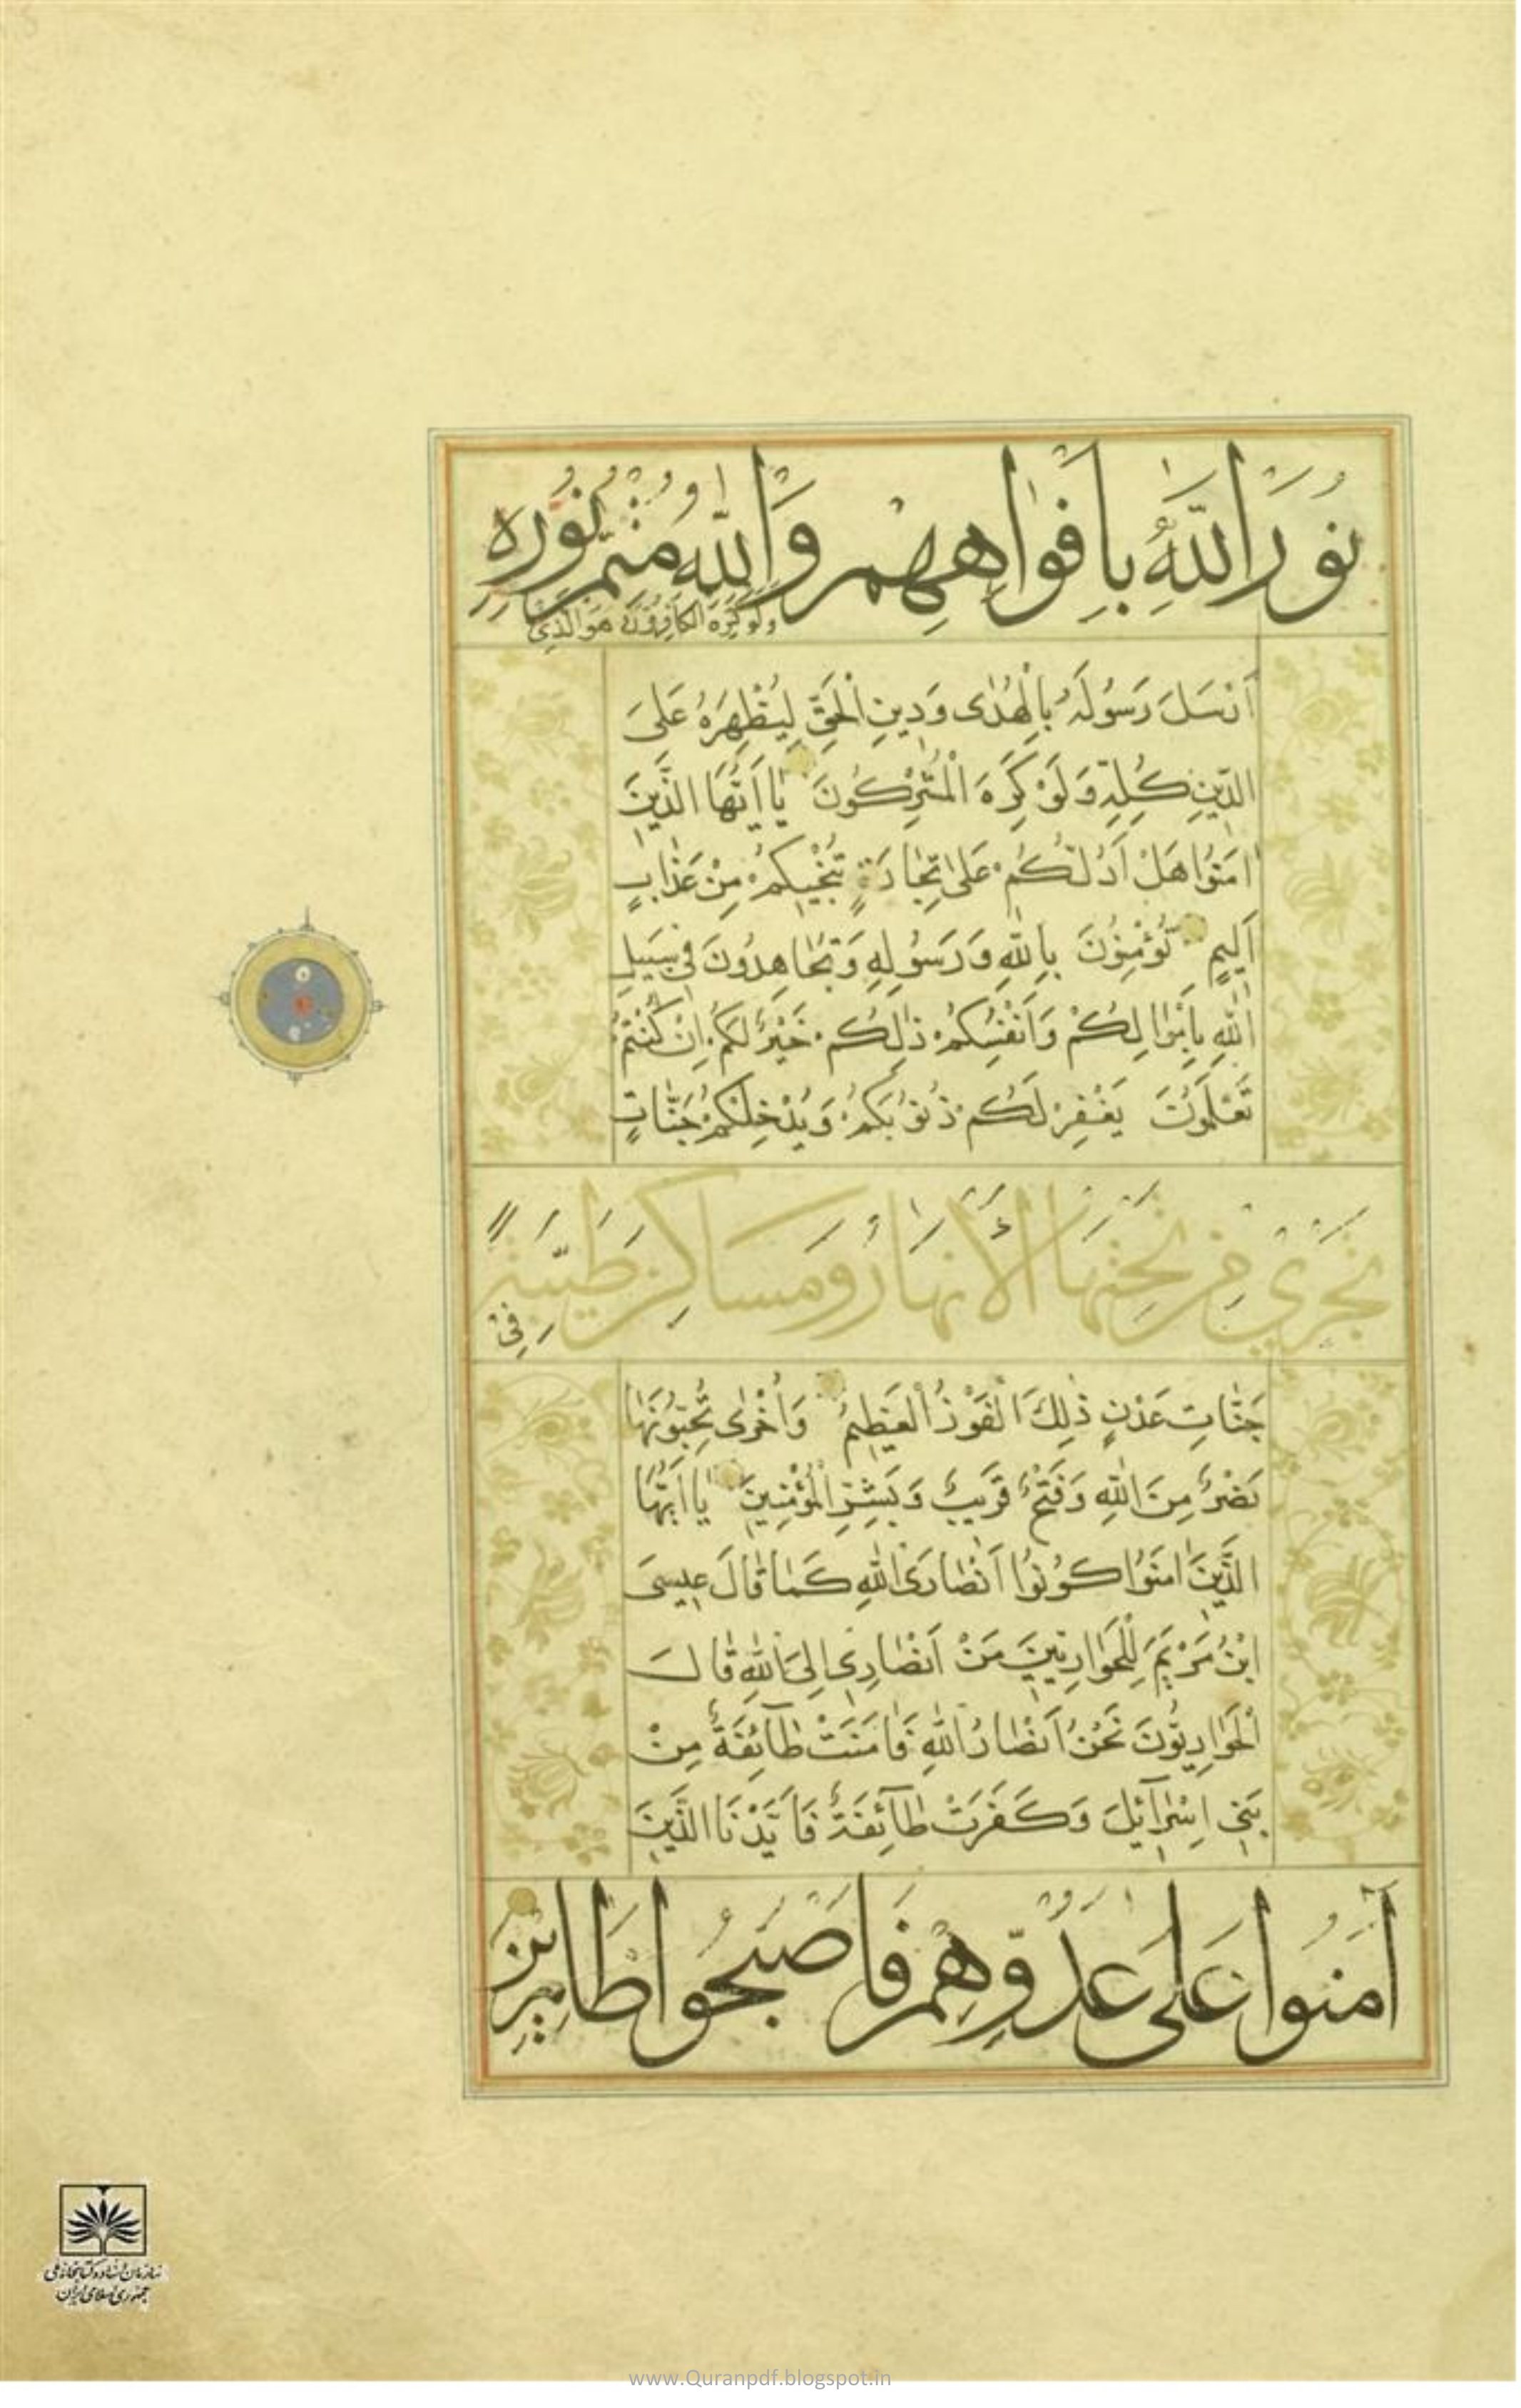 نُورَ اللّٰهِ بِاَفْوٰاهِهِمْ وَاللّٰهُ مُتِمُّ نُورِهِ
وَلَوْ كَرِهَ الْكَافِرُونَ هُوَ الَّذِي
اَرْسَلَ رَسُولَهُ بِالْهُدٰى وَدِينِ الْحَقِّ لِيُظْهِرَهُ عَلَى
الدِّينِ كُلِّهِ وَلَوْ كَرِهَ الْمُشْرِكُونَ يٰا اَيُّهَا الَّذِينَ
اٰمَنُوا هَلْ اَدُلُّكُمْ عَلىٰ تِجٰارَةٍ تُنْجِيكُمْ مِنْ عَذٰابٍ
اَلِيمٍ تُؤْمِنُونَ بِاللّٰهِ وَرَسُولِهِ وَتُجٰاهِدُونَ فِي سَبِيلِ
اللّٰهِ بِاَمْوٰالِكُمْ وَاَنْفُسِكُمْ ذٰلِكُمْ خَيْرٌ لَكُمْ اِنْ كُنْتُمْ
تَعْلَمُونَ يَغْفِرْ لَكُمْ ذُنُوبَكُمْ وَيُدْخِلْكُمْ جَنّٰاتٍ
تَجْرِي مِنْ تَحْتِهَا الْاَنْهَارُ وَمَسَاكِنَ طَيِّبَةً
فِي
جَنّٰاتِ عَدْنٍ ذٰلِكَ الْفَوْزُ الْعَظِيمُ وَاُخْرٰى تُحِبُّونَهٰا
نَصْرٌ مِنَ اللّٰهِ وَفَتْحٌ قَرِيبٌ وَبَشِّرِ الْمُؤْمِنِينَ يٰا اَيُّهَا
الَّذِينَ اٰمَنُوا كُونُوا اَنْصٰارَ اللّٰهِ كَمٰا قٰالَ عِيسَى
ابْنُ مَرْيَمَ لِلْحَوٰارِيِّينَ مَنْ اَنْصٰارِي اِلَى اللّٰهِ قٰالَ
الْحَوٰارِيُّونَ نَحْنُ اَنْصٰارُ اللّٰهِ فَاٰمَنَتْ طٰآئِفَةٌ مِنْ
بَنِي اِسْرٰآئِلَ وَكَفَرَتْ طٰآئِفَةٌ فَاَيَّدْنَا الَّذِينَ
آمَنُوا عَلىٰ عَدُوِّهِمْ فَاَصْبَحُوا ظَاهِرِينَ
سازمان اسناد و کتابخانه ملی
جمهوری اسلامی ایران
www.Quranpdf.blogspot.in